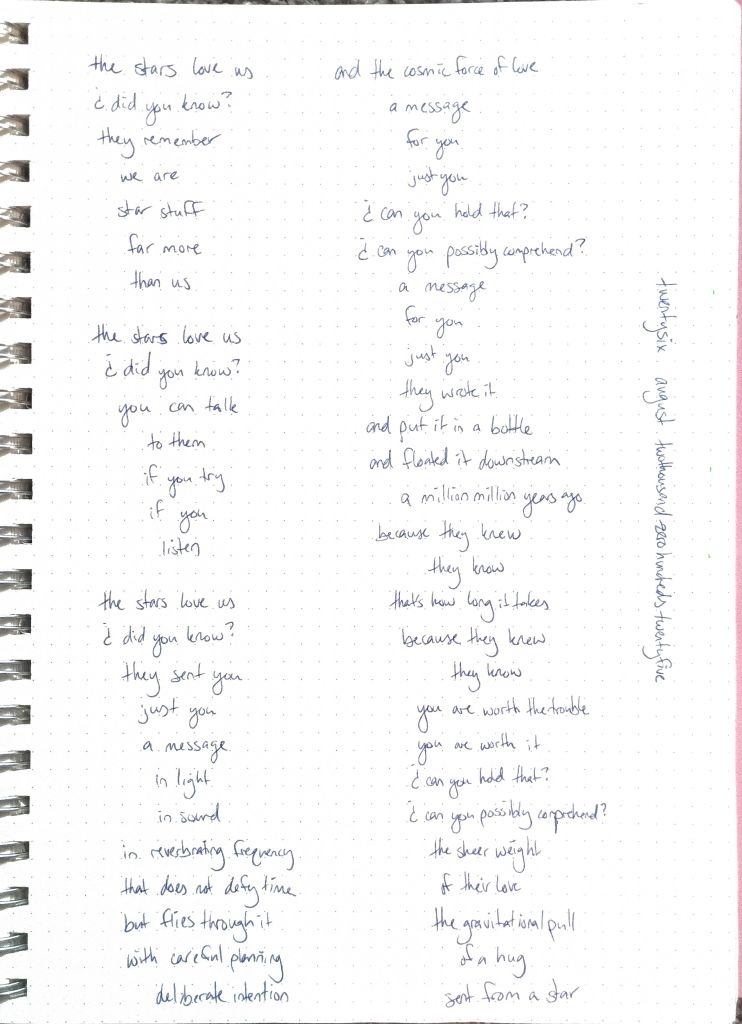 the stars love us
¿ did you know?
they remember
we are
star stuff
far more
than us
the stars love us
¿ did you know?
you can talk
to them
if you try
if you
listen
the stars love us
¿ did you know?
they sent you
just you
a message
in light
in sound
in reverbrating frequency
that does not defy time
but flies through it
with careful planning
deliberate intention
and the cosmic force of love
a message
for you
just you
¿ can you hold that?
¿ can you possibly comprehend?
a message
for you
just you
they wrote it
and put it in a bottle
and floated it downstream
a million million years ago
because they knew
they know
that's how long it takes
because they knew
they know
you are worth the trouble
you are worth it
¿ can you hold that?
¿ can you possibly comprehend?
the sheer weight
of their love
the gravitational pull
of a hug
sent from a star
twentysix august twothousand-zerohundreds-twentyfive